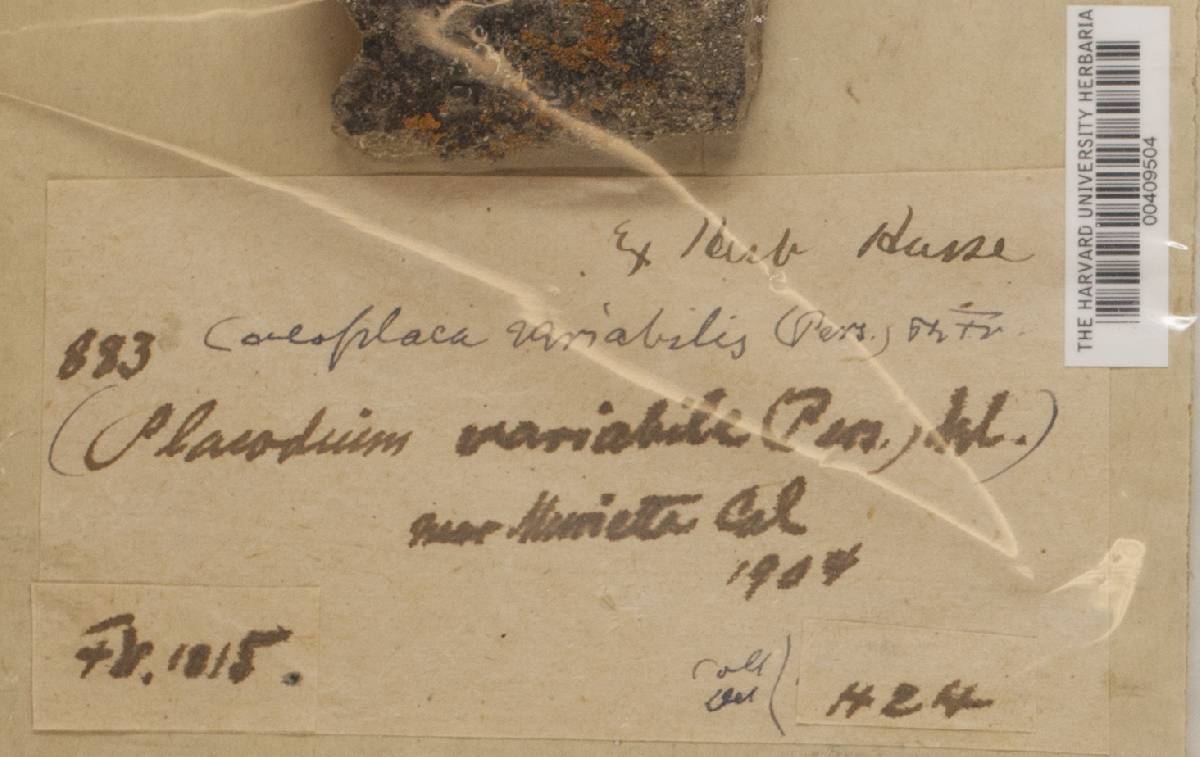 THE HARVARD UNIVERSITY HERBARIA
00409504
Ex Herb Hasse
883 Caloplaca variabilis (Pers.) Th Fr
(Placodium variabile (Pers.) Nyl.)
near Murieta Cal
1907
FW. 1015.
coll
det
H24